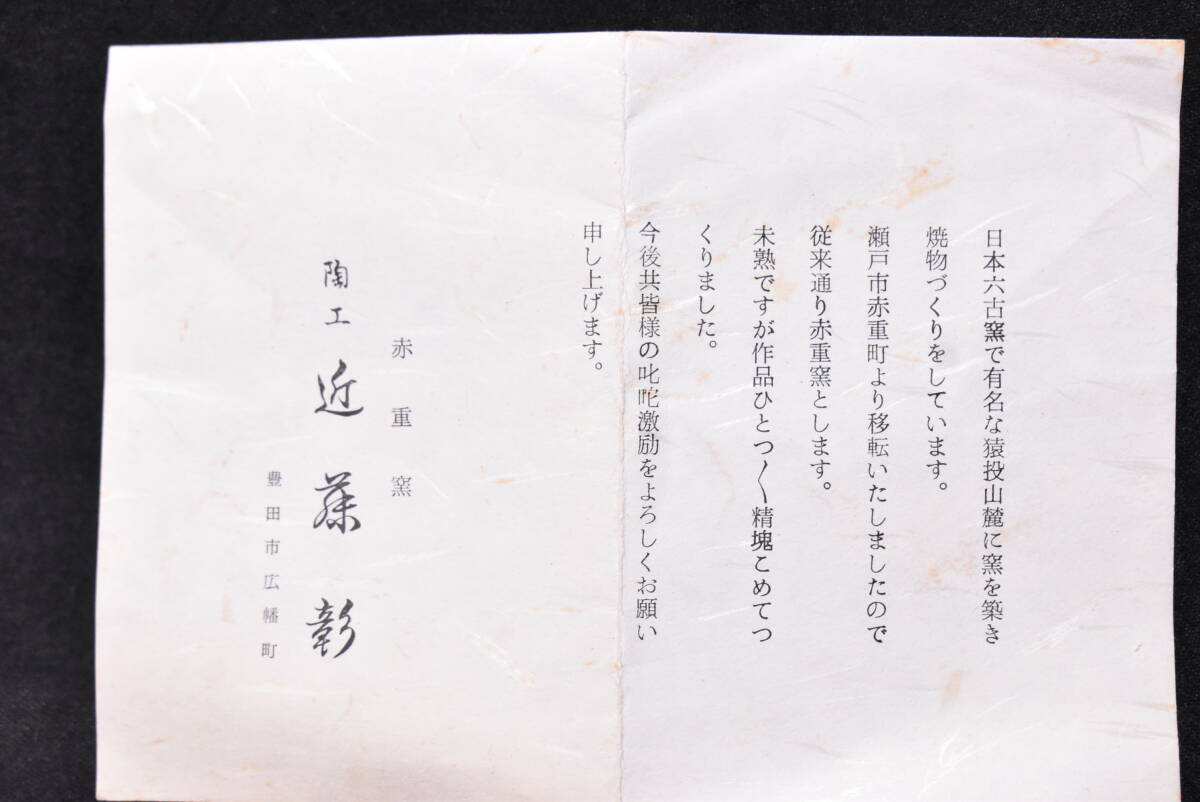 日本六古窯で有名な猿投山麓に窯を築き
焼物づくりをしています。
瀬戸市赤重町より移転いたしましたので
従来通り赤重窯とします。
未熟ですが作品ひとつ〱精塊こめてつ
くりました。
今後共皆様の叱咜激励をよろしくお願い
申し上げます。
赤重窯
陶工 近藤彰
豊田市広幡町